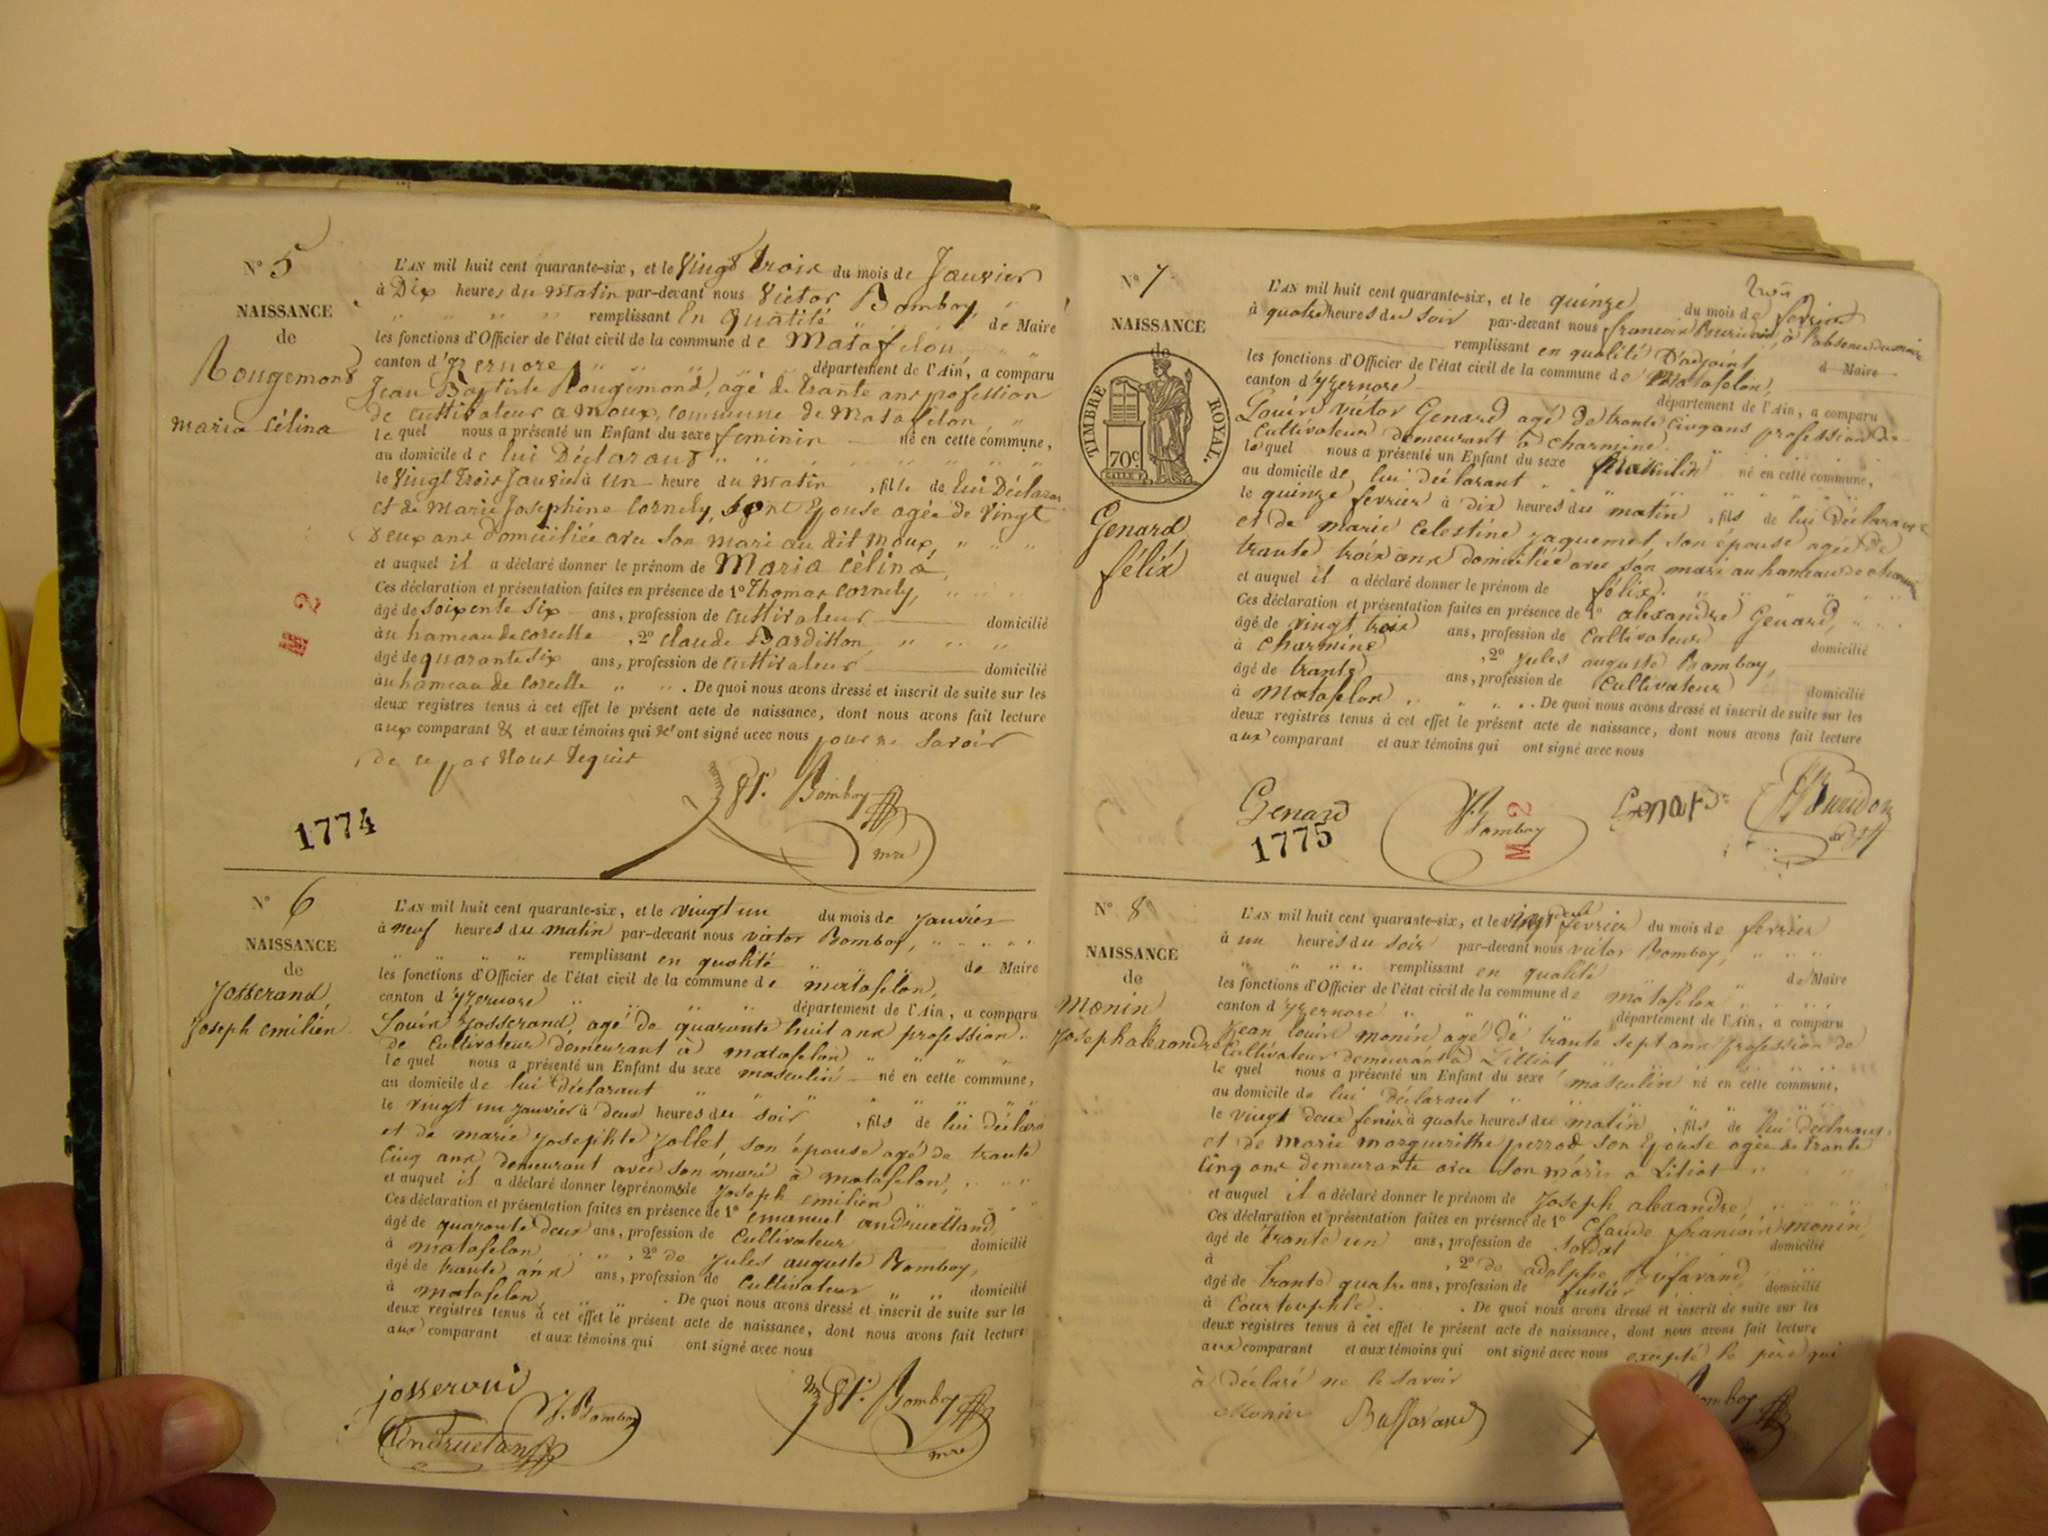 N° 5
NAISSANCE
de
Rougemond
Maria Célina
L'AN mil huit cent quarante-six, et le Vingt trois du mois de Janvier
à Dix heures du Matin par-devant nous Victor Bomboy,
remplissant En qualité de Maire
les fonctions d'Officier de l'état civil de la commune de Matafelon
canton d'Yzernore département de l'Ain, a comparu
Jean Baptiste Rougemond, agé de trante ans profession
de cultivateur a Moux, commune de Matafelon
le quel nous a présenté un Enfant du sexe feminin né en cette commune,
au domicile de lui Déclarant
le Vingt trois Janvier à Un heure du Matin, fille de lui Déclarant
et de Marie Josephine Cornely, Son Epouse agée de Vingt
Deux ans domiciliée avec Son Mari au dit Moux,
et auquel il a déclaré donner le prénom de Maria Célina
Ces déclaration et présentation faites en présence de 1° Thomas Cornely,
âgé de soixente six ans, profession de cultivateur domicilié
au hameau de Corcelle, 2° Claude Bardillon,
âgé de quarante six ans, profession de cultivateur domicilié
au hameau de Corcelle . De quoi nous avons dressé et inscrit de suite sur les
deux registres tenus à cet effet le présent acte de naissance, dont nous avons fait lecture
aux comparant & et aux témoins qui ont signé avec nous pour ne Savoir
de ce par Nous Requit
Bomboy
mre
1774
M 2
N° 6
NAISSANCE
de
Josserand
Joseph emilien
L'AN mil huit cent quarante-six, et le vingt un du mois de janvier
à neuf heures du matin par-devant nous victor Bomboy,
remplissant en qualité de Maire
les fonctions d'Officier de l'état civil de la commune de matafelon,
canton d'Yzernore département de l'Ain, a comparu
Louis Josserand, agé de quarante huit ans profession
de Cultivateur demeurant à matafelon
le quel nous a présenté un Enfant du sexe masculin né en cette commune,
au domicile de lui Déclarant
le vingt un janvier à deux heures du soir, fils de lui déclara
et de marie josephte Jollet, son épouse agé de trante
cinq ans demeurant avec son mari à matafelon,
et auquel il a déclaré donner les prénoms de Joseph emilien
Ces déclaration et présentation faites en présence de 1° emanuel andruetland,
âgé de quarante deux ans, profession de Cultivateur domicilié
à matafelon, 2° de Jules auguste Bomboy,
âgé de trante ans ans, profession de Cultivateur domicilié
à matafelon . De quoi nous avons dressé et inscrit de suite sur les
deux registres tenus à cet effet le présent acte de naissance, dont nous avons fait lecture
aux comparant et aux témoins qui ont signé avec nous
josserand
J. Bomboy
Andruetan
Bomboy
mre
N° 7
NAISSANCE
de
TIMBRE ROYAL.
70c
Genard
félix
L'AN mil huit cent quarante-six, et le quinze du mois de fevrier
à quatre heures du soir par-devant nous francois , à l'absence du maire
remplissant en qualité D'adjoint de Maire
les fonctions d'Officier de l'état civil de la commune de Matafelon,
canton d'Yzernore département de l'Ain, a comparu
Louis victor Genard agé de trante cinq ans profession de
Cultivateur demeurant à charmine.
le quel nous a présenté un Enfant du sexe Masculin né en cette commune,
au domicile de lui déclarant
le quinze fevrier à dix heures du matin, fils de lui Déclarant
et de marie Celestine jaquemet, son épouse agée de
trante trois ans domiciliée avec son mari au hameau de charmine
et auquel il a déclaré donner le prénom de félix.
Ces déclaration et présentation faites en présence de 1° alexandre Genard,
âgé de vingt trois ans, profession de Cultivateur domicilié
à charmine, 2° Jules auguste Bomboy,
âgé de trante ans, profession de Cultivateur domicilié
à Matafelon . De quoi nous avons dressé et inscrit de suite sur les
deux registres tenus à cet effet le présent acte de naissance, dont nous avons fait lecture
aux comparant et aux témoins qui ont signé avec nous
Genard
J. Bomboy
Genard
1775
M 2
N° 8
NAISSANCE
de
Monin
Joseph alexandre
L'AN mil huit cent quarante-six, et le vingt deux fevrier du mois de fevrier
à un heures du soir par-devant nous victor Bomboy,
remplissant en qualité de Maire
les fonctions d'Officier de l'état civil de la commune de matafelon
canton d'Yzernore département de l'Ain, a comparu
Jean louis monin agé de trante sept ans profession de
Cultivateur demeurant à Lilliat,
le quel nous a présenté un Enfant du sexe masculin né en cette commune,
au domicile de lui Déclarant
le vingt deux fevrier à quatre heures du matin, fils de lui déclarant,
et de marie marguerithe perrod son Epouse agée de trante
Cinq ans demeurante avec son mari a Liliat
et auquel il a déclaré donner le prénom de Joseph alexandre,
Ces déclaration et présentation faites en présence de 1° Claude francois monin,
âgé de trante un ans, profession de soldat domicilié
à , 2° de adolphe Buffavand,
âgé de trante quatre ans, profession de domicilié
à Courtouphle. . De quoi nous avons dressé et inscrit de suite sur les
deux registres tenus à cet effet le présent acte de naissance, dont nous avons fait lecture
aux comparant et aux témoins qui ont signé avec nous excepté le père qui
à déclaré ne le savoir
Monin
Buffavand
Bomboy